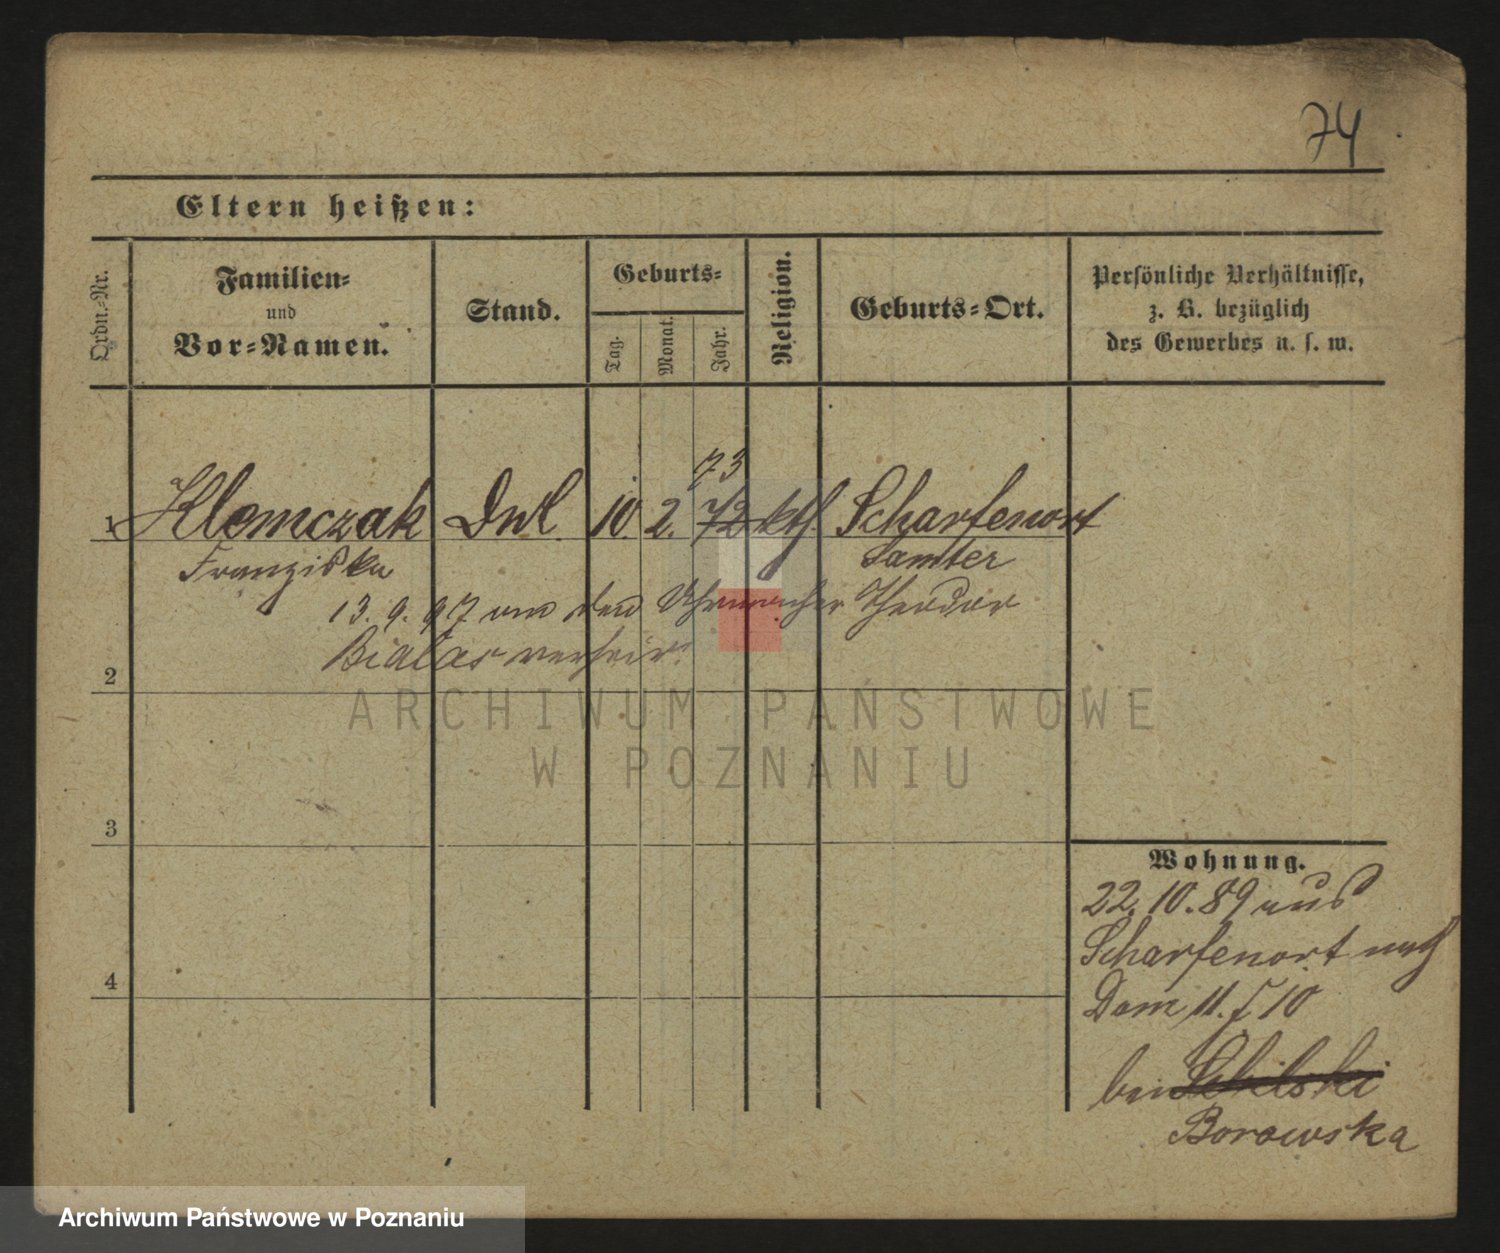 74
Eltern heißen:
Ordn.-Nr.
Familien-
und
Vor-Namen.
Stand.
Geburts-
Tag.
Monat.
Jahr.
Religion.
Geburts-Ort.
Persönliche Verhältnisse,
z. B. bezüglich
des Gewerbes u. s. w.
73
1 Klemczak Dnl. 10. 2. 72 kth. Scharfenort
Franziska Samter
13. 9. 97 an den Uhrmacher Theodor
Bialas verheir.
2
ARCHIWUM PAŃSTWOWE
W POZNANIU
3
Wohnung.
22. 10. 89 aus
Scharfenort nach
4
Dom 11. 10
bei
Borowska
Archiwum Państwowe w Poznaniu